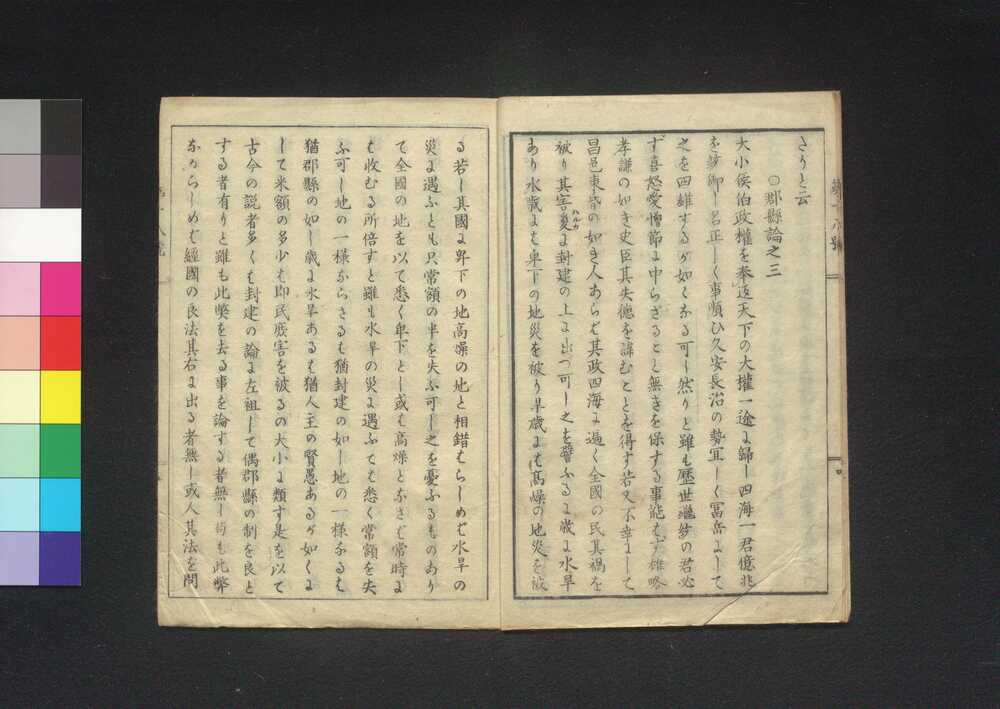 さりと云
〇郡縣論之三
大小侯伯政權を奉返天下の大權一途ニ歸し四海一君億兆
を統御し名正しく事順ひ久安長治の勢宜しく冨岳ニして
之を四雄するが如くなる可し然りと雖も歷世繼紗の君必
ず喜怒愛憎節に中らざること無きを保する事能はず雄略
孝謙の如き史臣其失徳を諱むことを得す若又不幸ニして
昌邑東昏の如き人あらば其政四海に遍く全國の民其禍を
被り其害夐ハルカに封建の上に出つ可し之を譬ふるに歳に水旱
あり水歳にも卑下の地災を被り旱歳にも高燥の地災を被
る若し其國に卑下の地高燥の地と相錯はらしめば水旱の
災に遇ふとも只常額の半を失ふ可し之を憂ふるものあり
て全國の地を以て悉く卑下とし或も高燥となさば常時に
も收むる所倍すと雖も水旱の災に遇ふても悉く常額を失
ふ可し地の一様ならさるも猶封建の如し地の一様なるは
猶郡縣の如し歳に水旱あるも猶人主の賢愚あるが如くに
して米額の多少も即民庶害を被るの大小に類す是を以て
古今の説者多くも封建の論に左袒して偶郡縣の制を良と
する者有りと雖も此弊を去る事を論する者無し苟も此弊
なからしめば經國の良法其右に出る者無し或人其法を問